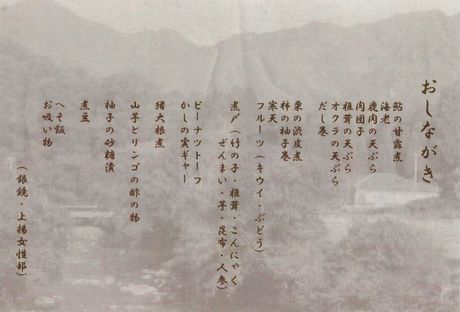 おしながき
鮎の甘露煮
海老
鹿肉の天ぷら
肉団子
椎茸の天ぷら
オクラの天ぷら
だし巻
栗の渋皮煮
柿の柚子巻
寒天
フルーツ(キウイ・ぶどう)
煮〆(竹の子・椎茸・こんにゃく
ぜんまい・芋・昆布・人参)
ピーナツトーフ
かしの実ギャー
猪大根煮
山芋とリンゴの酢の物
柚子の砂糖漬
煮豆
へそ飯
お吸い物
(銀鏡・上揚女性部)